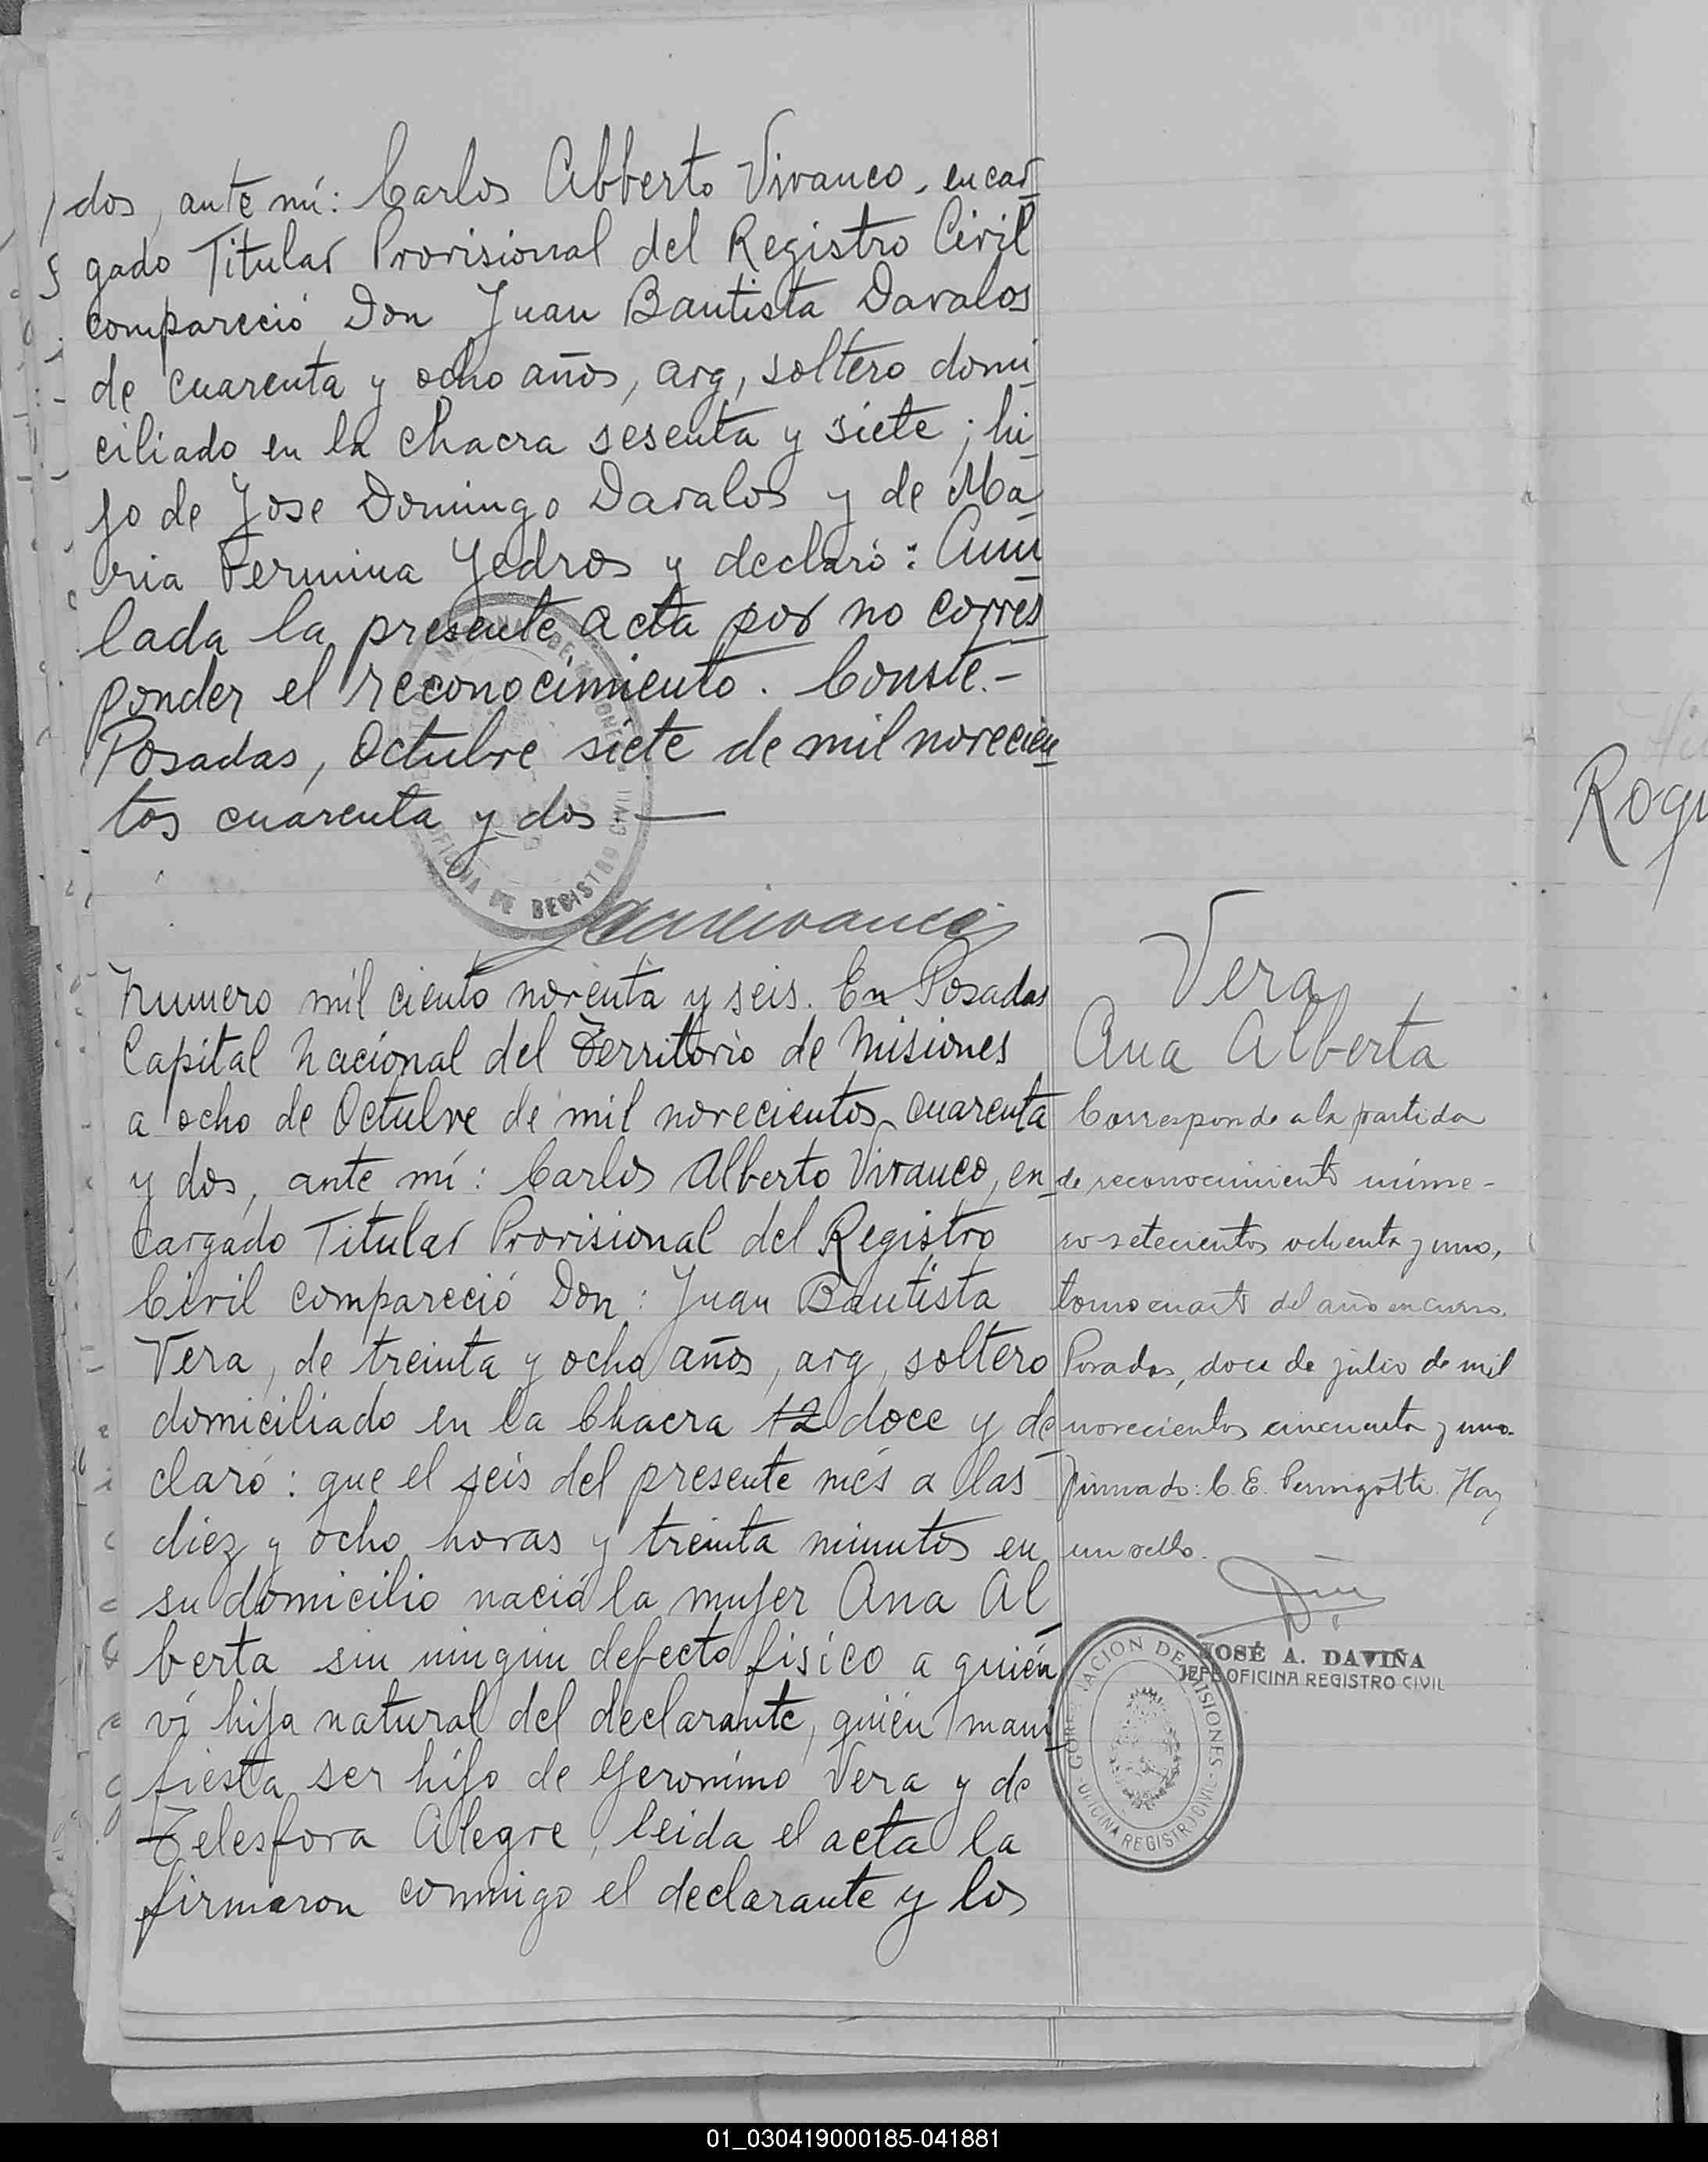 dos, ante mí: Carlos Albberto Vivanco, encar
gado Titular Provisional del Registro Civil
compareció Don Juan Bautista Davalos
de cuarenta y ocho años, arg, soltero domi
ciliado en la chacra sesenta y siete; hi
jo de Jose Domingo Davalos y de Ma
ria Fermina Yedros y declaró: Anu
lada la presente acta por no corres
ponder el reconocimiento. Conste.-
Posadas, Octubre siete de mil novecien
tos cuarenta y dos —
OFICINA DE REGISTRO CIVIL
Numero mil ciento noventa y seis. En Posadas
Capital Nacional del Territorio de Misiones
a ocho de Octubre de mil novecientos cuarenta
y dos, ante mí: Carlos Alberto Vivanco, en
cargado Titular Provisional del Registro
Civil compareció Don: Juan Bautista
Vera, de treinta y ocho años, arg, soltero
domiciliado en la Chacra 12 doce y de
claró: que el seis del presente més a las
diez y ocho horas y treinta minutos en
su domicilio nació la mujer Ana Al
berta sin ningun defecto fisico a quién
ví hija natural del declarante, quién mani
fiesta ser hijo de Geronimo Vera y de
Telesfora Alegre, leida el acta la
firmaron conmigo el declarante y los
Vera
Ana Alberta
Corresponde a la partida
de reconocimiento núme-
ro setecientos ochenta y uno,
tomo cuarto del año en curso.
Posadas, doce de julio de mil
novecientos cincuenta y uno.
firmado: C. E. Pernigotti. Hay
un sello.
JOSÉ A. DAVIÑA
JEFE OFICINA REGISTRO CIVIL
GOBERNACION DE MISIONES
OFICINA REGISTRO CIVIL
Roqu
01_030419000185-041881